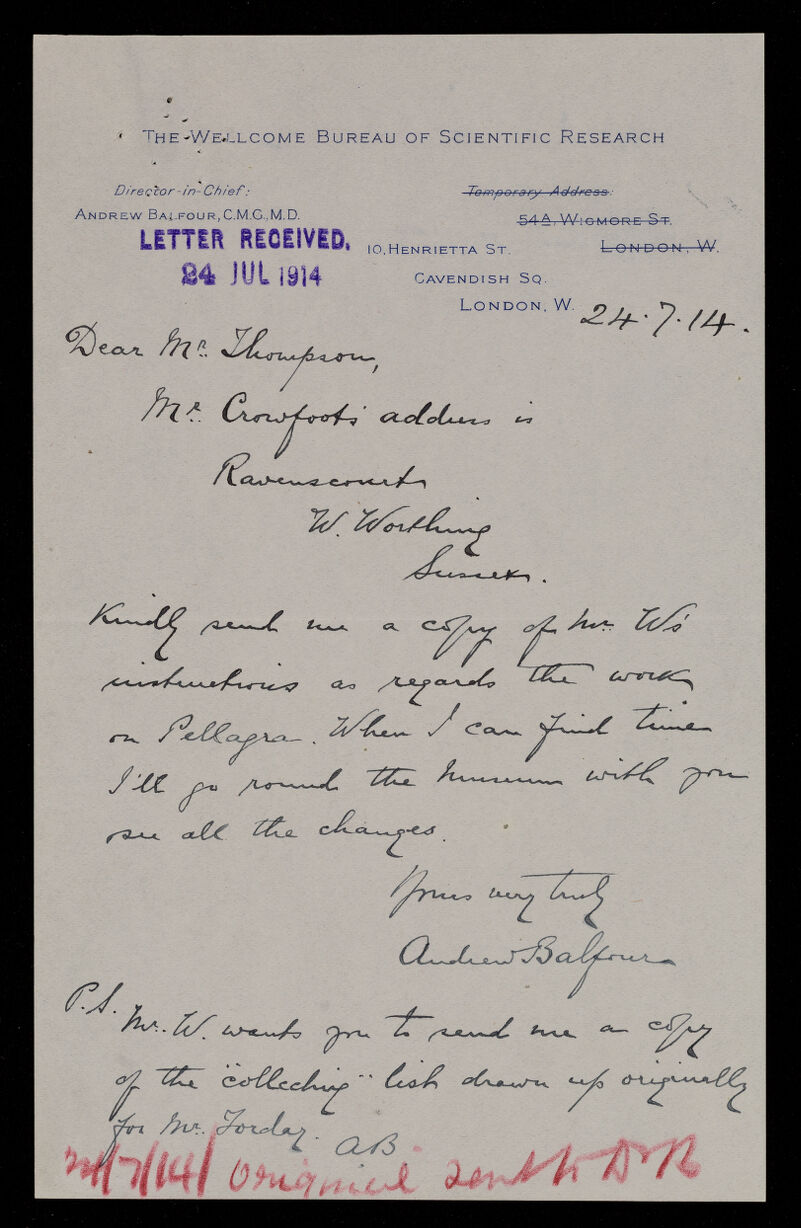 THE WELLCOME BUREAU OF SCIENTIFIC RESEARCH
Director-in-Chief:
ANDREW BALFOUR, C.M.G., M.D.
Temporary Address:
54A, WIGMORE ST.
LONDON, W.
LETTER RECEIVED.
24 JUL 1914
10, HENRIETTA ST.
CAVENDISH SQ.
LONDON, W.
24.7.14.
Dear Mr. Thompson,
Mr. Crowfoot's address is
Ravenscourt
W. Worthing
Sussex.
Kindly send me a copy of Mr. W's
instructions as regards the work
on Pellagra. When I can find time
I'll go round the Museum with you
see all the changes.
Yours very truly
Andrew Balfour
P.S. Mr. W. wants you to send me a copy
of the "collecting" list drawn up originally
for Mr. Torday. AB
24/7/14 / Original sent to Dr B